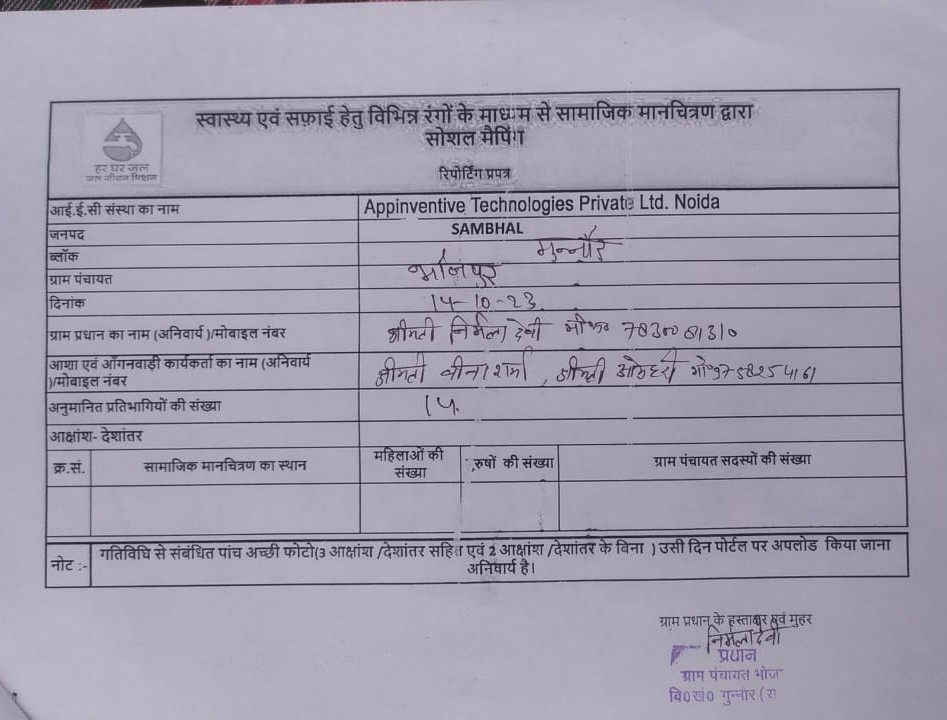 स्वास्थ्य एवं सफ़ाई हेतु विभिन्न रंगों के माध्यम से सामाजिक मानचित्रण द्वारा
सोशल मैपिंग
हर घर जल
जल जीवन मिशन
रिपोर्टिंग प्रपत्र
आई.ई.सी संस्था का नाम Appinventive Technologies Private Ltd. Noida
जनपद SAMBHAL
ब्लॉक
ग्राम पंचायत भोजपुर
दिनांक 14-10-23
ग्राम प्रधान का नाम (अनिवार्य )/मोबाइल नंबर श्रीमती निर्मला देवी
आशा एवं आँगनवाड़ी कार्यकर्ता का नाम (अनिवार्य श्रीमती वीना शर्मा , श्रीमती
)/मोबाइल नंबर
अनुमानित प्रतिभागियों की संख्या
आक्षांश- देशांतर
क्र.सं. सामाजिक मानचित्रण का स्थान महिलाओं की संख्या रुषों की संख्या ग्राम पंचायत सदस्यों की संख्या
नोट :- गतिविधि से संबंधित पांच अच्छी फोटो(3 आक्षांश /देशांतर सहित एवं 2 आक्षांश /देशांतर के विना ) उसी दिन पोर्टल पर अपलोड किया जाना
अनिवार्य है।
ग्राम प्रधान के हस्ताक्षर एवं मुहर
निर्मला देवी
प्रधान
ग्राम पंचायत भोज
वि0खं0 गुन्नौर (स